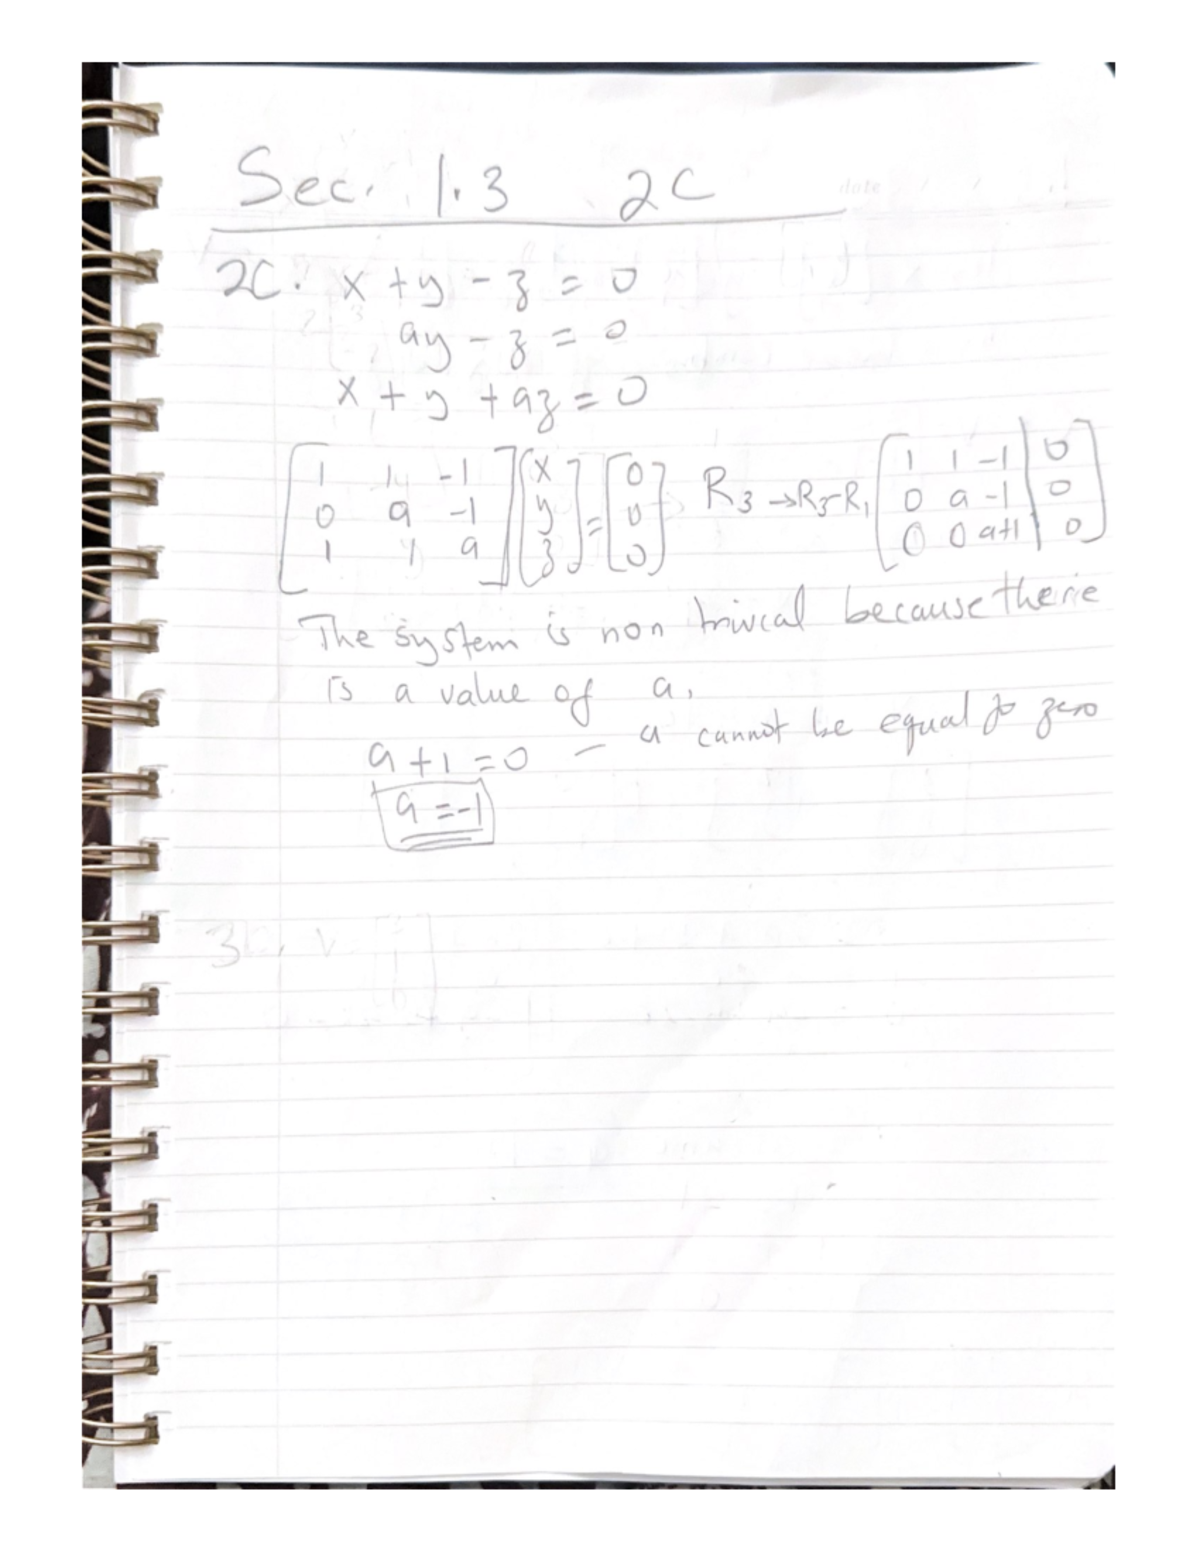 Sec. 1.3 2C
date
2C. x + y - z = 0
ay - z = 0
x + y + az = 0
[1 1 -1; 0 a -1; 1 1 a] [x; y; z] = [0; 0; 0] R3 → R3-R1 [1 1 -1 | 0; 0 a -1 | 0; 0 0 a+1 | 0]
The system is non trivical because there
is a value of a.
a + 1 = 0 — a cannot be equal to zero
a = -1
3